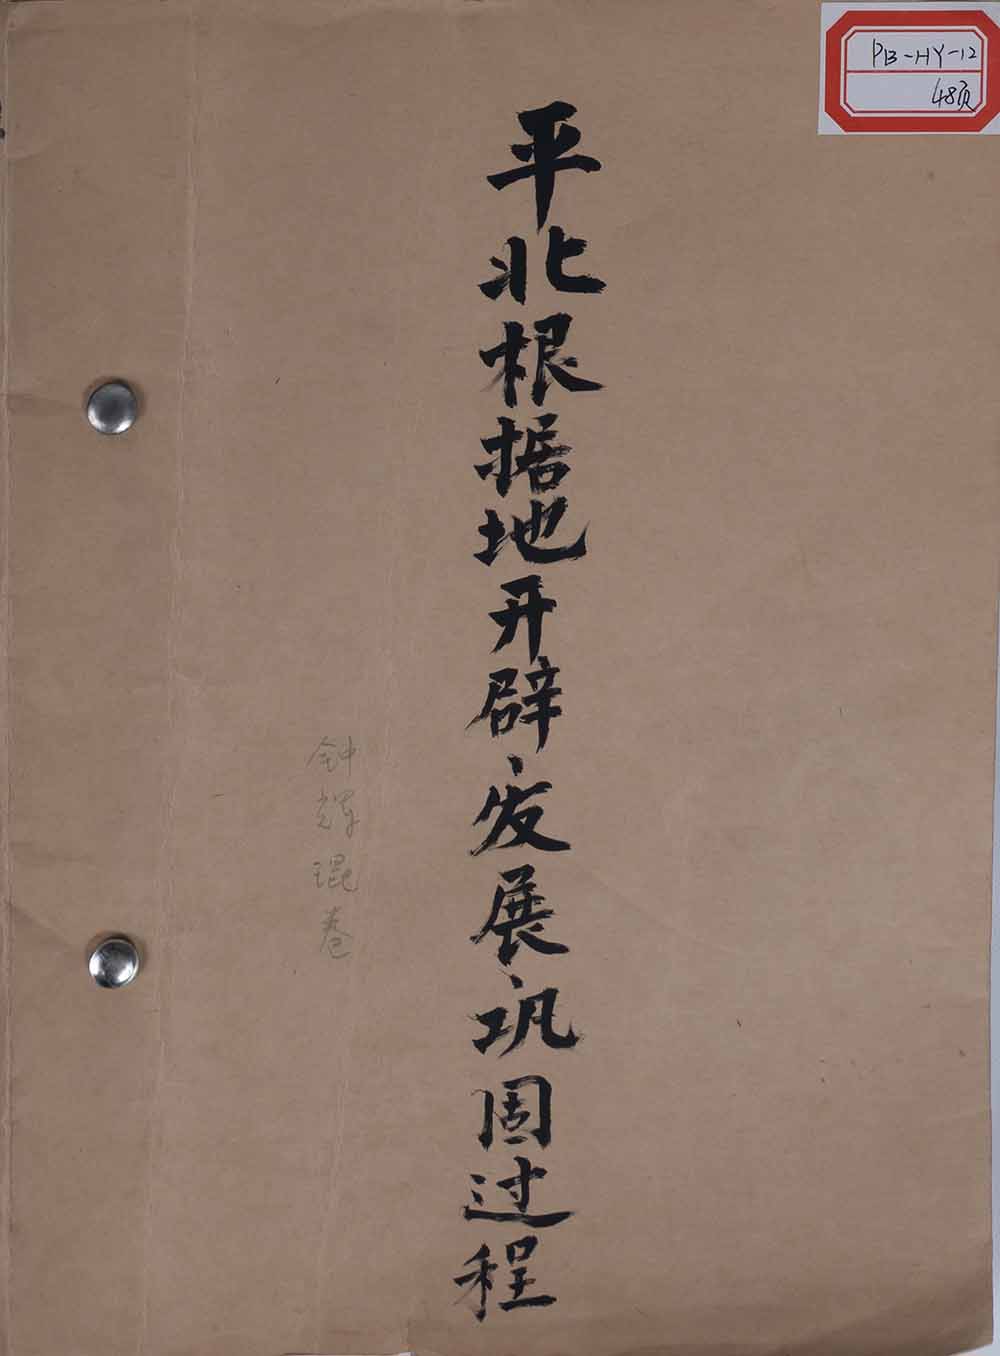 PB-HY-12
48页
平北根据地开辟、发展、巩固过程
钟辉琨卷